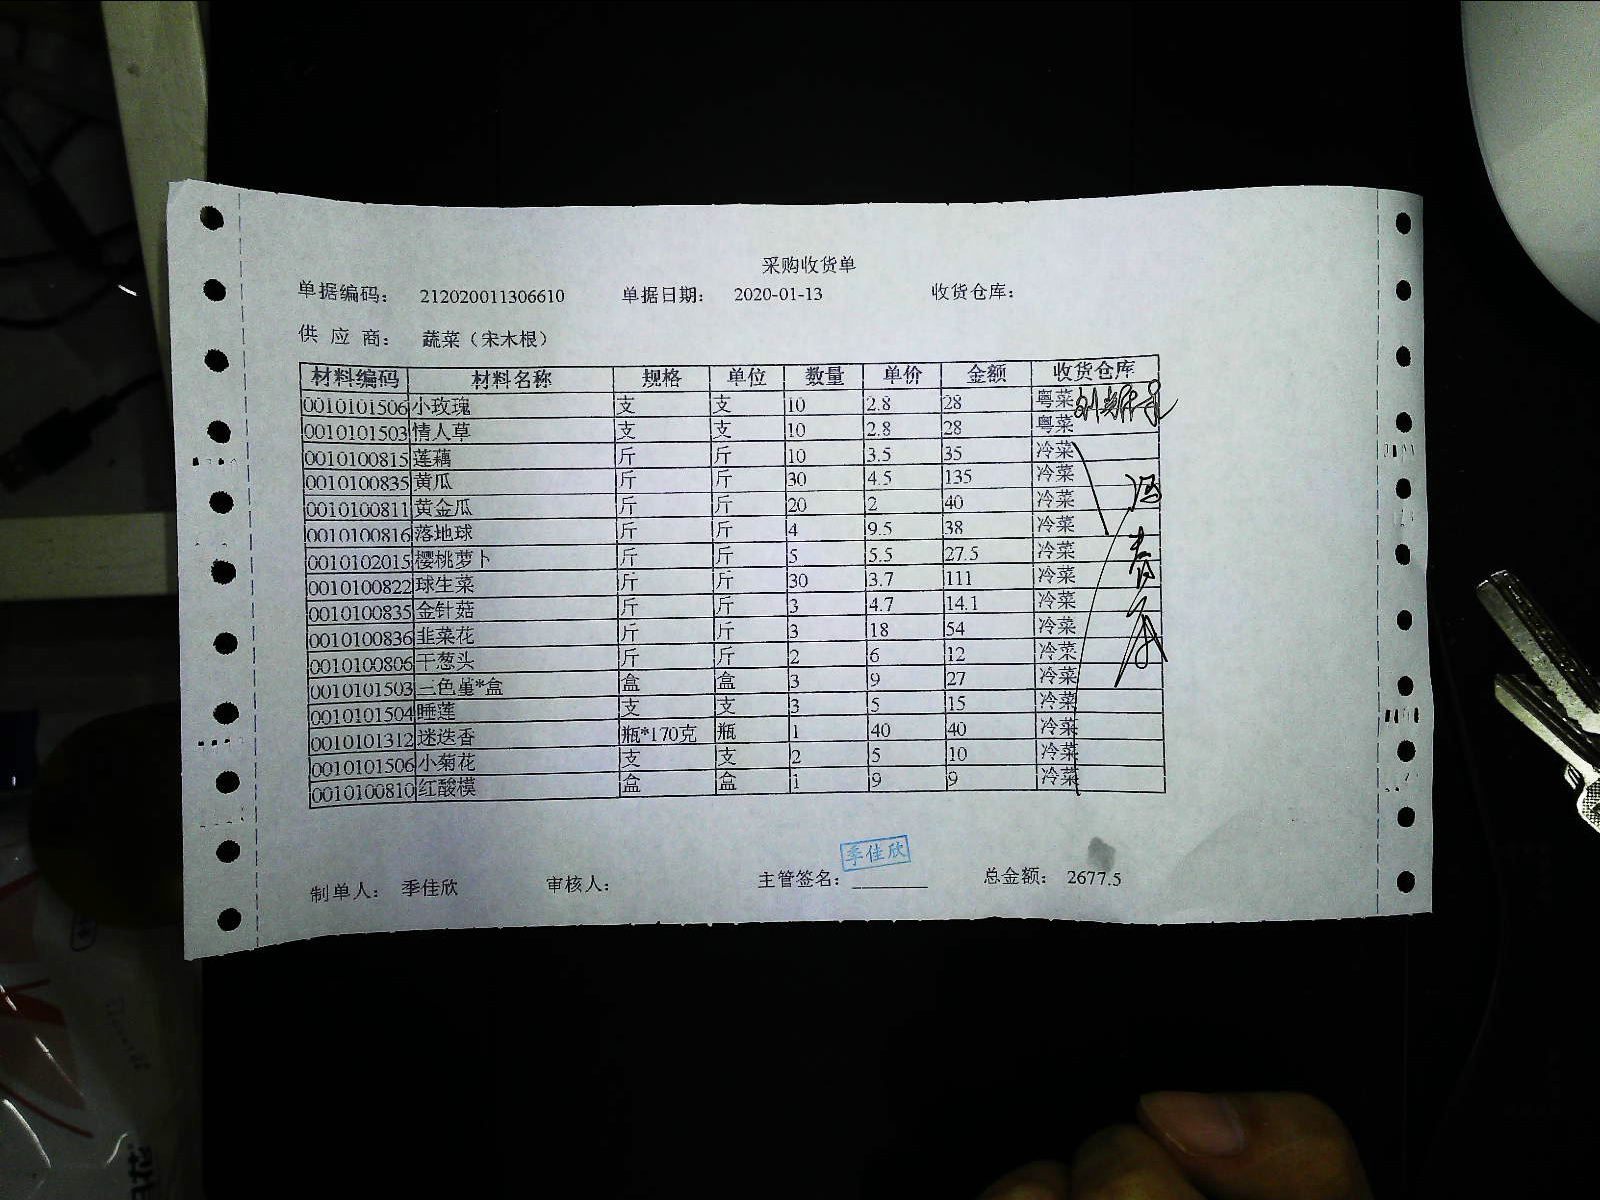 采购收货单
单据编码： 212020011306610 单据日期： 2020-01-13 收货仓库：
供 应 商： 蔬菜（宋木根）
材料编码 材料名称 规格 单位 数量 单价 金额 收货仓库
0010101506 小玫瑰 支 支 10 2.8 28 粤菜
0010101503 情人草 支 支 10 2.8 28 粤菜
0010100815 莲藕 斤 斤 10 3.5 35 冷菜
0010100835 黄瓜 斤 斤 30 4.5 135 冷菜
0010100811 黄金瓜 斤 斤 20 2 40 冷菜
0010100816 落地球 斤 斤 4 9.5 38 冷菜
0010102015 樱桃萝卜 斤 斤 5 5.5 27.5 冷菜
0010100822 球生菜 斤 斤 30 3.7 111 冷菜
0010100835 金针菇 斤 斤 3 4.7 14.1 冷菜
0010100836 韭菜花 斤 斤 3 18 54 冷菜
0010100806 干葱头 斤 斤 2 6 12 冷菜
0010101503 三色堇*盒 盒 盒 3 9 27 冷菜
0010101504 睡莲 支 支 3 5 15 冷菜
0010101312 迷迭香 瓶*170克 瓶 1 40 40 冷菜
0010101506 小菊花 支 支 2 5 10 冷菜
0010100810 红酸模 盒 盒 1 9 9 冷菜
季佳欣
制单人： 季佳欣 审核人： 主管签名： 总金额： 2677.5